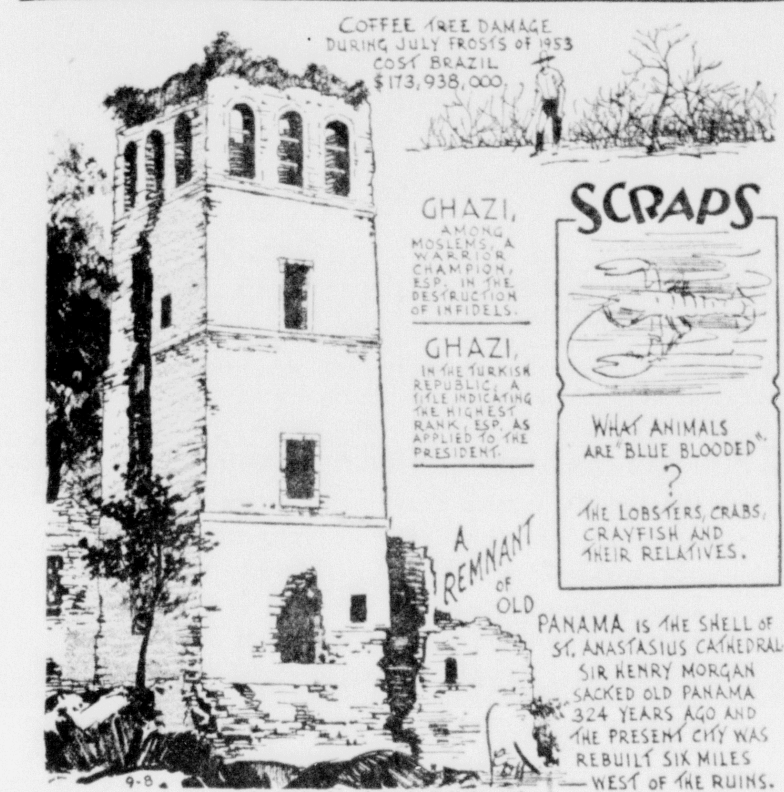 COFFEE TREE DAMAGE
DURING JULY FROSTS OF 1953
COST BRAZIL
$173,938,000.
GHAZI,
AMONG
MOSLEMS, A
WARRIOR
CHAMPION,
ESP. IN THE
DESTRUCTION
OF INFIDELS.
GHAZI,
IN THE TURKISH
REPUBLIC, A
TITLE INDICATING
THE HIGHEST
RANK, ESP. AS
APPLIED TO THE
PRESIDENT.
SCRAPS
WHAT ANIMALS
ARE "BLUE BLOODED"
?
THE LOBSTERS, CRABS,
CRAYFISH AND
THEIR RELATIVES.
A
REMNANT
OF
OLD
PANAMA IS THE SHELL OF
ST. ANASTASIUS CATHEDRAL
SIR HENRY MORGAN
SACKED OLD PANAMA
324 YEARS AGO AND
THE PRESENT CITY WAS
REBUILT SIX MILES
WEST OF THE RUINS.
9-8.